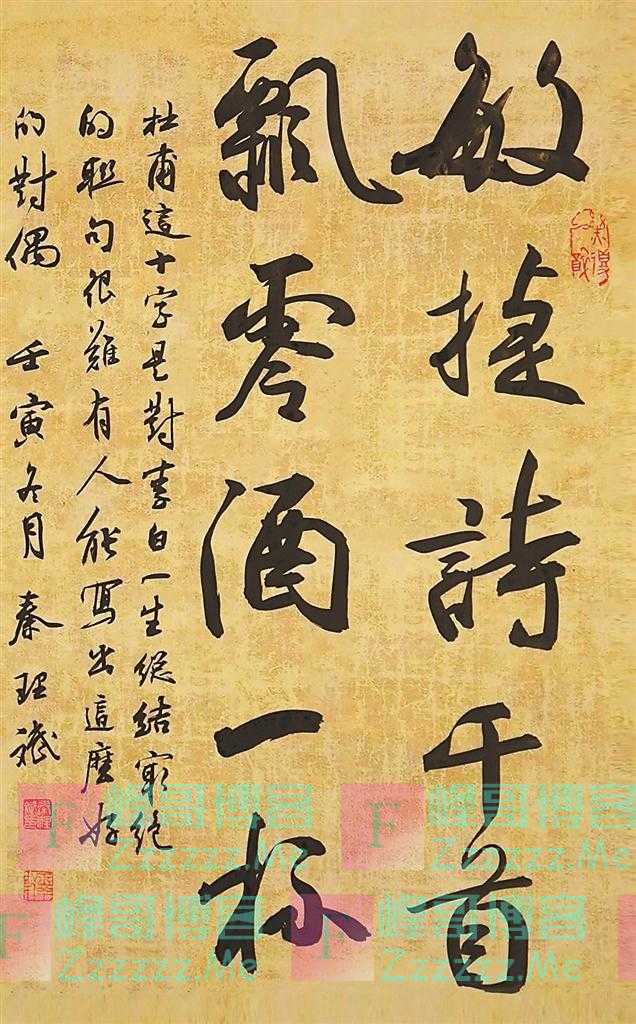 敏捷詩千首
飄零酒一杯
杜甫這十字是對李白一生總結最絕
的联句很難有人能寫出這麼好
的對偶 壬寅冬月 秦理斌
F 峰哥博客
Zzzzzz.Me
F 峰哥博客
Zzzzzz.Me
F 峰哥博客
Zzzzzz.Me
F 峰哥博客
Zzzzzz.Me